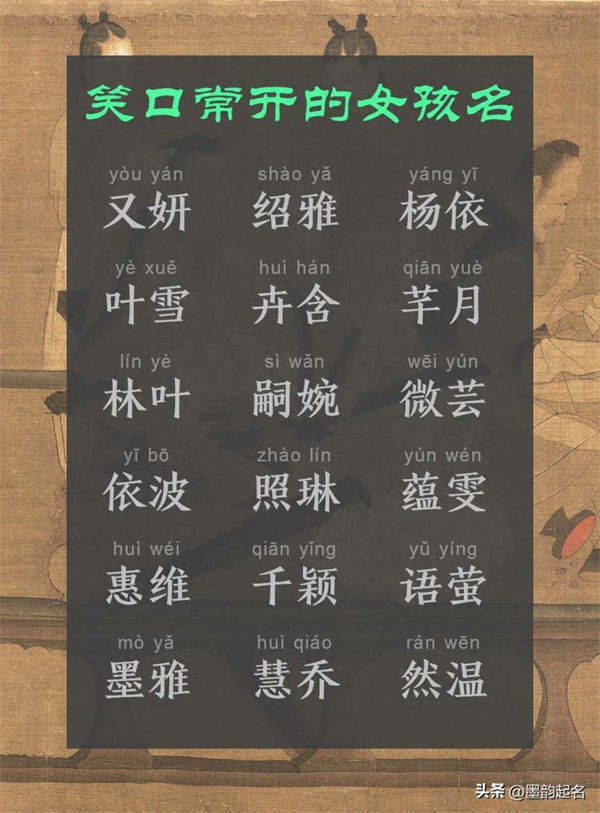 笑口常开的女孩名
yòu yán shào yǎ yáng yī
又妍 绍雅 杨依
yè xuě huì hán qiān yuè
叶雪 卉含 芊月
lín yè sì wǎn wēi yún
林叶 嗣婉 微芸
yī bō zhào lín yùn wén
依波 照琳 蕴雯
huì wéi qiān yǐng yǔ yíng
惠维 千颖 语萤
mò yǎ huì qiáo rán wēn
墨雅 慧乔 然温
头条 @墨韵起名